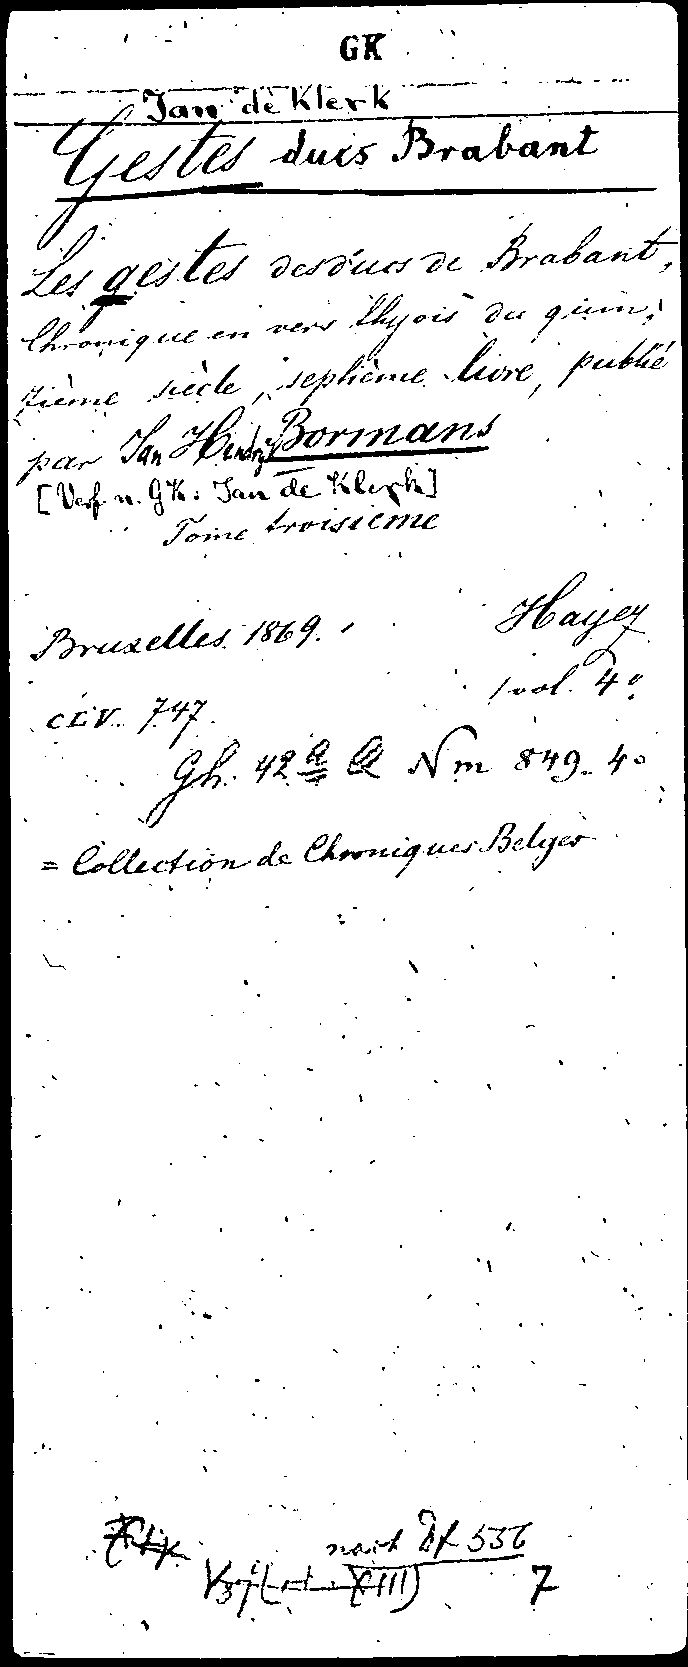 GK
Jan de Klerk
Gestes ducs Brabant
Les gestes des ducs de Brabant,
Chronique en vers thyois du quin-
zième siècle, septième livre, publié
par Jan Hendrik Bormans
[Verf. n. GK: Jan de Klerk]
Tome troisième
Bruxelles 1869. Hayez
CLV. 747. 1 vol. 4º
Gh. 42 a Q Nm 849. 4º
= Collection de Chroniques Belges
nach Df 556
7